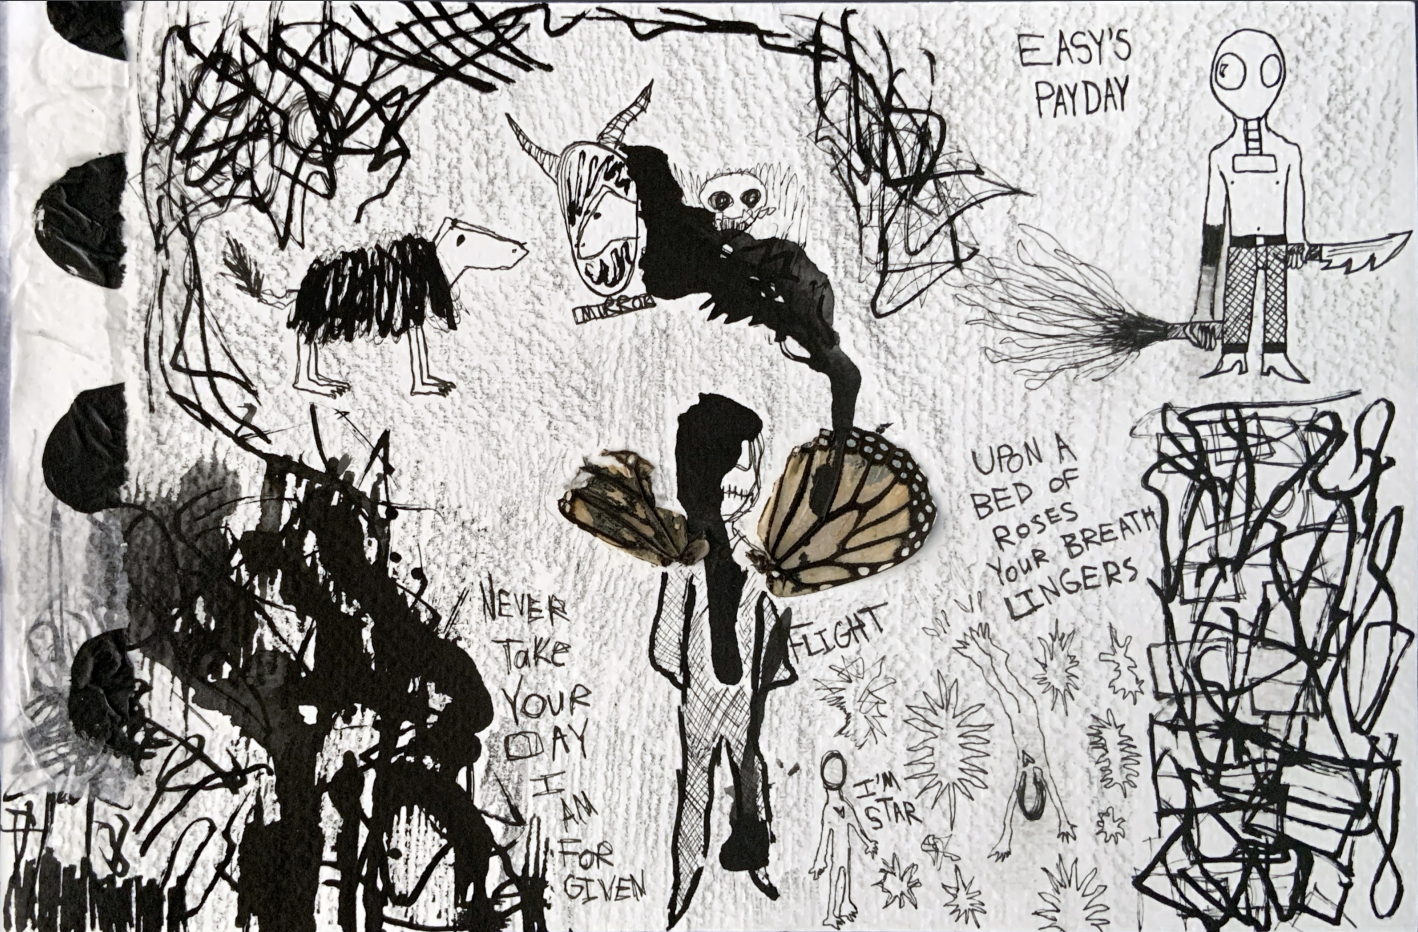 EASY'S
PAYDAY
MIRROR
UPON A
BED OF
ROSES
YOUR BREATH
LINGERS
NEVER
Take
YOUR
DAY
I
AM
FOR
GIVEN
FLIGHT
I'M
STAR